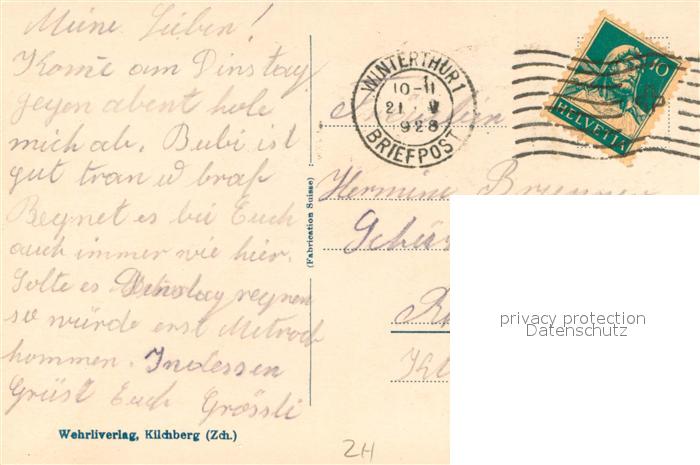 Meine Lieben!
Kome am Dinstay
gegen abent hole
mich ab. Bubi ist
gut tran u braf
Regnet es bei Euch
auch immer wie hier.
Solte es Dinstay regnen
so würde erst Metwoch
kommen. Indessen
Grüst Euch Grössli
Wehrliverlag, Kilchberg (Zch.)
(Fabrication Suisse)
WINTERTHUR 1
10-11
21. V
928
BRIEFPOST
10
HELVETIA
Fräulein
Hermine
privacy protection
Datenschutz
ZH